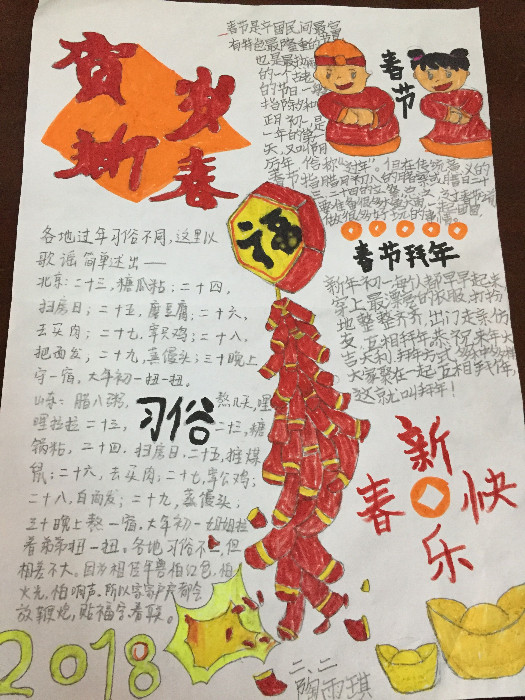 贺岁
新春
春节是中国民间最富
有特色最隆重的
也是最
的一个古老
的节日一般
指除夕和
正月初一是
一年的第一
天，又叫阴
历年，俗称“过年”。但在传统意义的
春节指腊月初八的腊祭或腊月二十
三
春节
福
春节拜年
新年初一每人都早早起来
穿上最漂亮的衣服，打扮
地整整齐齐，出门走亲访
友，互相拜年恭祝来年大
吉大利，拜年方式多种多样
大家聚在一起互相拜年，
这就叫拜年！
各地过年习俗不同，这里以
歌谣简单述出——
北京：二十三，糖瓜粘；二十四，
扫房日；二十五，磨豆腐；二十六，
去买肉；二十七，宰只鸡；二十八，
把面发，二十九，蒸馒头；三十晚上
守一宿，大年初一扭一扭。
习俗
山东：腊八粥，熬几天，哩
哩拉拉二十三，二十三，糖
锅粘，二十四，扫房日，二十五，推煤
鼠；二十六，去买肉；二十七，宰公鸡；
二十八，白面发；二十九，蒸馒头，
三十晚上熬一宿，大年初一姐姐拉
着弟弟扭一扭。各地习俗不一，但
相差不大。因为相怪年兽怕红色，怕
火光，怕响声，所以家家户户都会
放鞭炮，贴福字，春联。
新春快乐
2018
二、二
陶雨琪